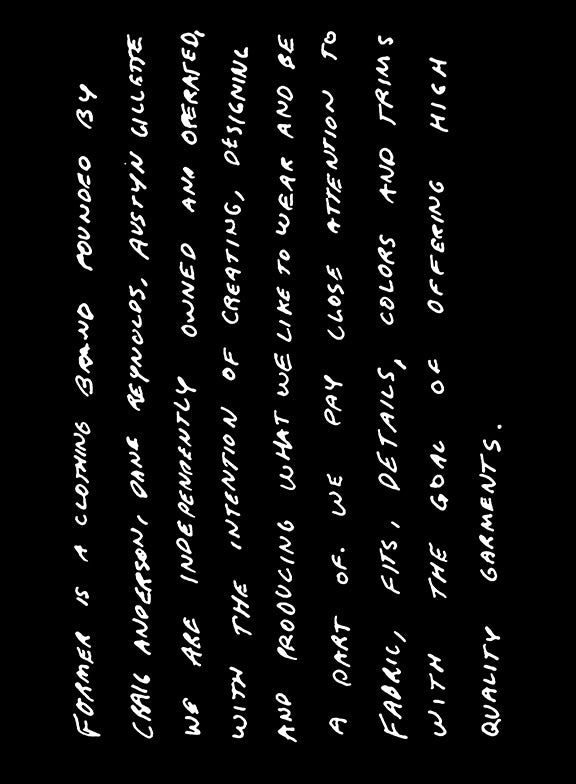 FORMER IS A CLOTHING BRAND FOUNDED BY
CRAIG ANDERSON, DANE REYNOLDS, AUSTYN GILLETTE
WE ARE INDEPENDENTLY OWNED AND OPERATED,
WITH THE INTENTION OF CREATING, DESIGNING
AND PRODUCING WHAT WE LIKE TO WEAR AND BE
A PART OF. WE PAY CLOSE ATTENTION TO
FABRIC, FITS, DETAILS, COLORS AND TRIMS
WITH THE GOAL OF OFFERING HIGH
QUALITY GARMENTS.